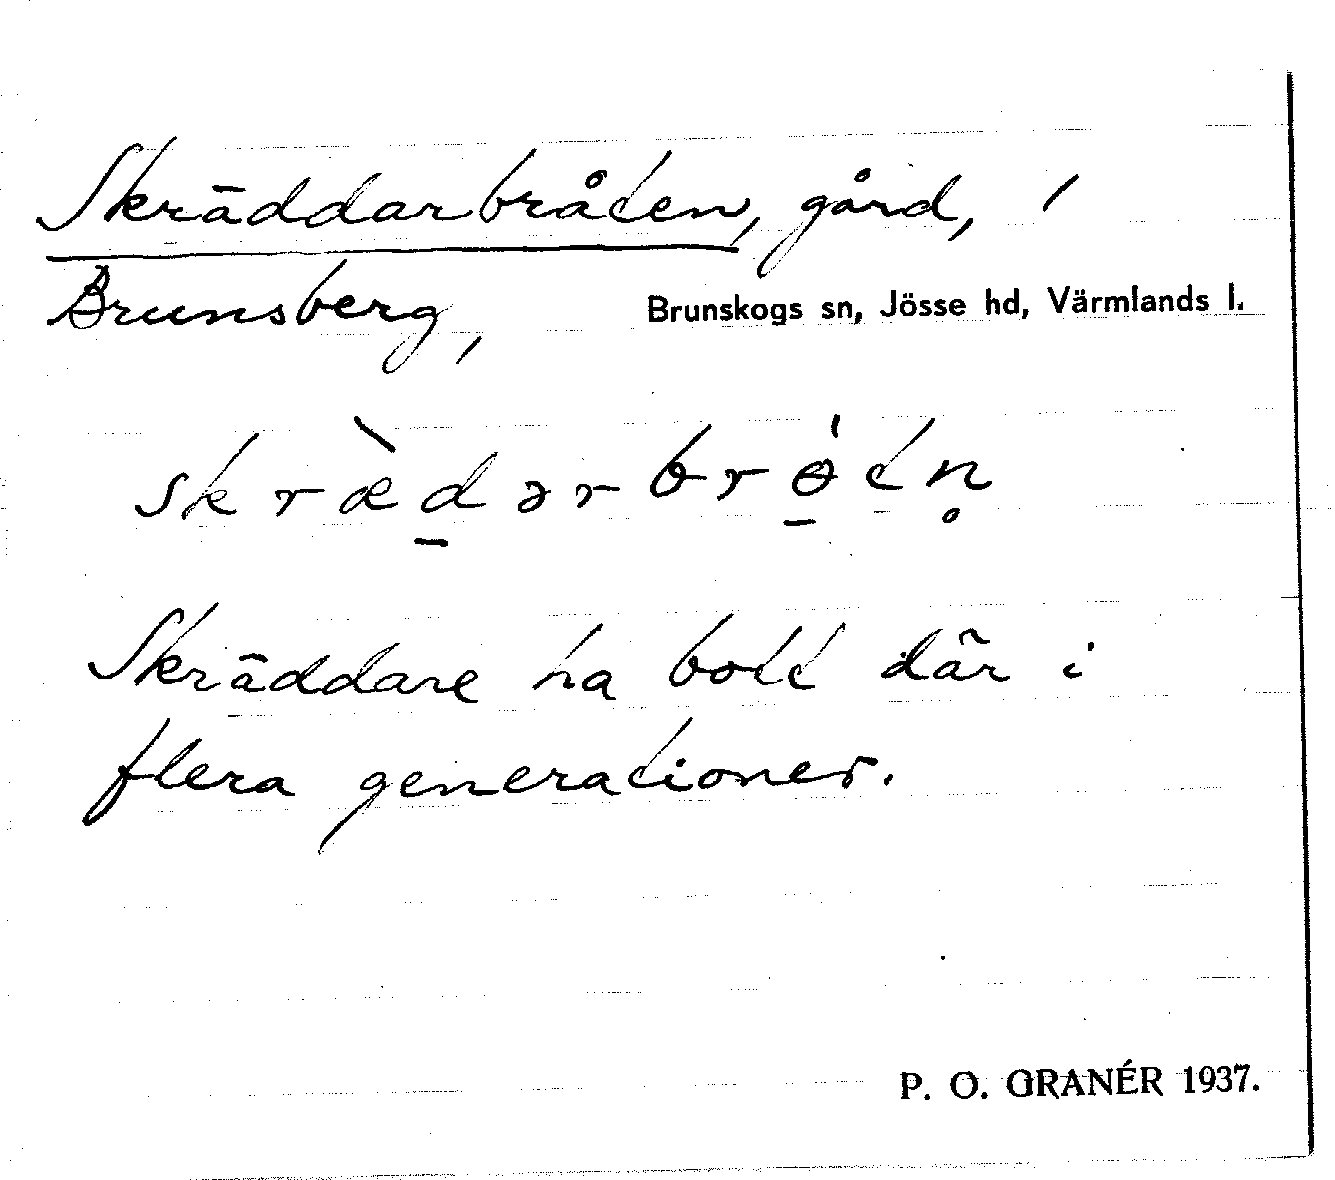 Skräddarbråten, gård, /
Brunsberg, Brunskogs sn, Jösse hd, Värmlands l.
skræ̀d̠ərbrɵ̠́tn̥
Skräddare ha bott där i
flera generationer.
P. O. GRANÉR 1937.